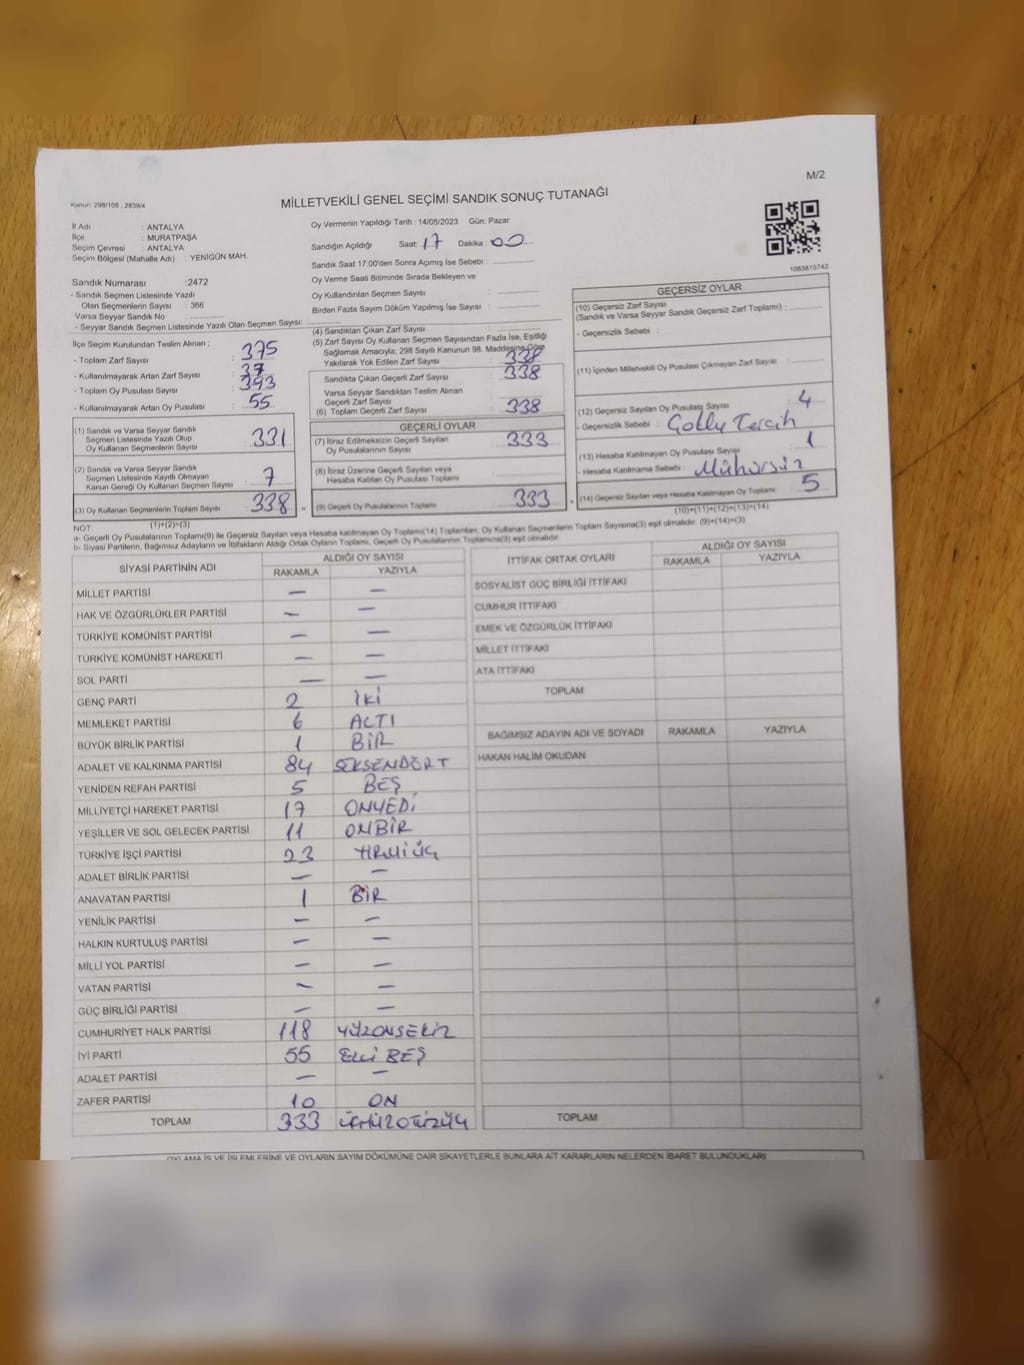 M/2
Kanun: 298/105 , 2839/4
MİLLETVEKİLİ GENEL SEÇİMİ SANDIK SONUÇ TUTANAĞI
İl Adı : ANTALYA
İlçe : MURATPAŞA
Seçim Çevresi : ANTALYA
Seçim Bölgesi (Mahalle Adı) : YENİGÜN MAH.
Sandık Numarası :2472
- Sandık Seçmen Listesinde Yazılı
Olan Seçmenlerin Sayısı : 366
Varsa Seyyar Sandık No :
- Seyyar Sandık Seçmen Listesinde Yazılı Olan Seçmen Sayısı:
İlçe Seçim Kurulundan Teslim Alınan ;
- Toplam Zarf Sayısı : 375
- Kullanılmayarak Artan Zarf Sayısı : 37
- Toplam Oy Pusulası Sayısı : 393
- Kullanılmayarak Artan Oy Pusulası : 55
(1) Sandık ve Varsa Seyyar Sandık
Seçmen Listesinde Yazılı Olup
Oy Kullanan Seçmenlerin Sayısı : 331
(2) Sandık ve Varsa Seyyar Sandık
Seçmen Listesinde Kayıtlı Olmayan
Kanun Gereği Oy Kullanan Seçmen Sayısı : 7
(3) Oy Kullanan Seçmenlerin Toplam Sayısı : 338
(1)+(2)=(3)
Oy Vermenin Yapıldığı Tarih : 14/05/2023 Gün: Pazar
Sandığın Açıldığı Saat: 17 Dakika : 00
Sandık Saat 17:00'den Sonra Açılmış İse Sebebi :
Oy Verme Saati Bitiminde Sırada Bekleyen ve
Oy Kullandırılan Seçmen Sayısı :
Birden Fazla Sayım Döküm Yapılmış İse Sayısı :
(4) Sandıktan Çıkan Zarf Sayısı :
(5) Zarf Sayısı Oy Kullanan Seçmen Sayısından Fazla İse, Eşitliği
Sağlamak Amacıyla; 298 Sayılı Kanunun 98. Maddesine Göre
Yakılarak Yok Edilen Zarf Sayısı : 338
Sandıkta Çıkan Geçerli Zarf Sayısı : 338
Varsa Seyyar Sandıktan Teslim Alınan
Geçerli Zarf Sayısı :
(6) Toplam Geçerli Zarf Sayısı : 338
GEÇERLİ OYLAR
(7) İtiraz Edilmeksizin Geçerli Sayılan
Oy Pusulalarının Sayısı : 333
(8) İtiraz Üzerine Geçerli Sayılan veya
Hesaba Katılan Oy Pusulası Toplamı :
(9) Geçerli Oy Pusulalarının Toplamı : 333
1083815742
GEÇERSİZ OYLAR
(10) Geçersiz Zarf Sayısı
(Sandık ve Varsa Seyyar Sandık Geçersiz Zarf Toplamı) :
- Geçersizlik Sebebi :
(11) İçinden Milletvekili Oy Pusulası Çıkmayan Zarf Sayısı :
(12) Geçersiz Sayılan Oy Pusulası Sayısı : 4
- Geçersizlik Sebebi : Çoklu Tercih
(13) Hesaba Katılmayan Oy Pusulası Sayısı : 1
- Hesaba Katılmama Sebebi : Mühürsüz
(14) Geçersiz Sayılan veya Hesaba Katılmayan Oy Toplamı : 5
(10)+(11)+(12)+(13)=(14)
NOT:
a- Geçerli Oy Pusulalarının Toplamı(9) ile Geçersiz Sayılan veya Hesaba katılmayan Oy Toplamı(14) Toplamları, Oy Kullanan Seçmenlerin Toplam Sayısına(3) eşit olmalıdır. (9)+(14)=(3)
b- Siyasi Partilerin, Bağımsız Adayların ve İttifakların Aldığı Ortak Oyların Toplamı, Geçerli Oy Pusulalarının Toplamına(9) eşit olmalıdır.
SİYASİ PARTİNİN ADI ALDIĞI OY SAYISI
RAKAMLA YAZIYLA
MİLLET PARTİSİ — —
HAK VE ÖZGÜRLÜKLER PARTİSİ — —
TÜRKİYE KOMÜNİST PARTİSİ — —
TÜRKİYE KOMÜNİST HAREKETİ — —
SOL PARTİ — —
GENÇ PARTİ 2 İKİ
MEMLEKET PARTİSİ 6 ALTI
BÜYÜK BİRLİK PARTİSİ 1 BİR
ADALET VE KALKINMA PARTİSİ 84 SEKSENDÖRT
YENİDEN REFAH PARTİSİ 5 BEŞ
MİLLİYETÇİ HAREKET PARTİSİ 17 ONYEDİ
YEŞİLLER VE SOL GELECEK PARTİSİ 11 ONBİR
TÜRKİYE İŞÇİ PARTİSİ 23 YİRMİÜÇ
ADALET BİRLİK PARTİSİ — —
ANAVATAN PARTİSİ 1 BİR
YENİLİK PARTİSİ — —
HALKIN KURTULUŞ PARTİSİ — —
MİLLİ YOL PARTİSİ — —
VATAN PARTİSİ — —
GÜÇ BİRLİĞİ PARTİSİ — —
CUMHURİYET HALK PARTİSİ 118 YÜZONSEKİZ
İYİ PARTİ 55 ELLİ BEŞ
ADALET PARTİSİ — —
ZAFER PARTİSİ 10 ON
TOPLAM 333 ÜÇYÜZOTUZÜÇ
İTTİFAK ORTAK OYLARI ALDIĞI OY SAYISI
RAKAMLA YAZIYLA
SOSYALİST GÜÇ BİRLİĞİ İTTİFAKI
CUMHUR İTTİFAKI
EMEK VE ÖZGÜRLÜK İTTİFAKI
MİLLET İTTİFAKI
ATA İTTİFAKI
TOPLAM
BAĞIMSIZ ADAYIN ADI VE SOYADI RAKAMLA YAZIYLA
HAKAN HALİM OKUDAN
TOPLAM
OYLAMA İŞ VE İŞLEMLERİNE VE OYLARIN SAYIM DÖKÜMÜNE DAİR ŞİKAYETLERLE BUNLARA AİT KARARLARIN NELERDEN İBARET BULUNDUKLARI